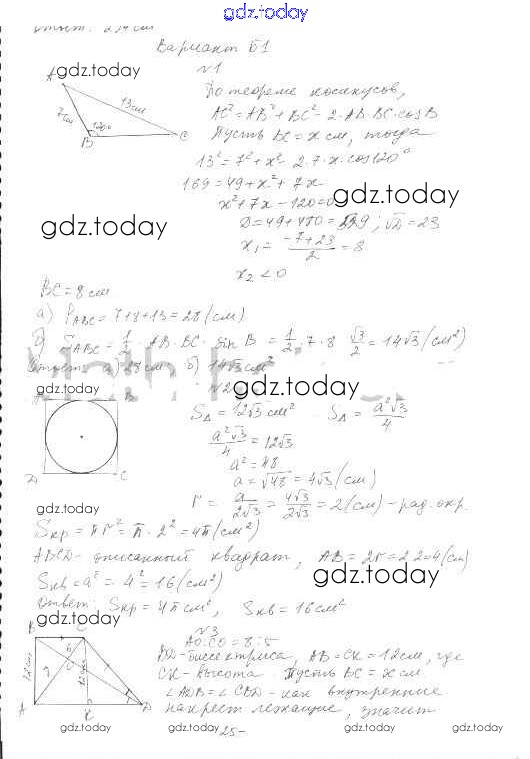 gdz.today
Ответ: 274 см
Вариант Б1
№1
gdz.today
По теореме косинусов,
AC² = AB² + BC² - 2·AB·BC·cosB
Пусть BC = x см, тогда
A
7см
13 см
120°
B
C
13² = 7² + x² - 2·7·x·cos120°
169 = 49 + x² + 7x
x² + 7x - 120 = 0
gdz.today
gdz.today
D = 49 + 480 = 529; √D = 23
x₁ = (-7+23)/2 = 8
x₂ < 0
BC = 8 см
а) P_ABC = 7+8+13 = 28 (см)
б) S_ABC = 1/2 · AB · BC · sin B = 1/2 · 7 · 8 √3/2 = 14√3 (см²)
Ответ: а) 28 см б) 14√3 см²
№2
gdz.today
gdz.today
A B
S_Δ = 12√3 см² S_Δ = a²√3/4
a²√3/4 = 12√3
a² = 48
a = √48 = 4√3 (см)
D C
r = a/2√3 = 4√3/2√3 = 2 (см) - рад. окр.
gdz.today
S_кр = πr² = π·2² = 4π (см²)
ABCD - описанный квадрат, AB = 2r = 2·2 = 4 (см)
S_кв = a² = 4² = 16 (см²)
gdz.today
Ответ: S_кр = 4π см², S_кв = 16 см²
№3
gdz.today
AO:CO = 8:5
B C
12 см
12 см
A K D
BD - биссектриса, AB = CK = 12 см, где
CK - высота. Пусть BC = x см
∠ADB = ∠CBD - как внутренние
накрест лежащие, значит
gdz.today
gdz.today
-25-
gdz.today
gdz.today